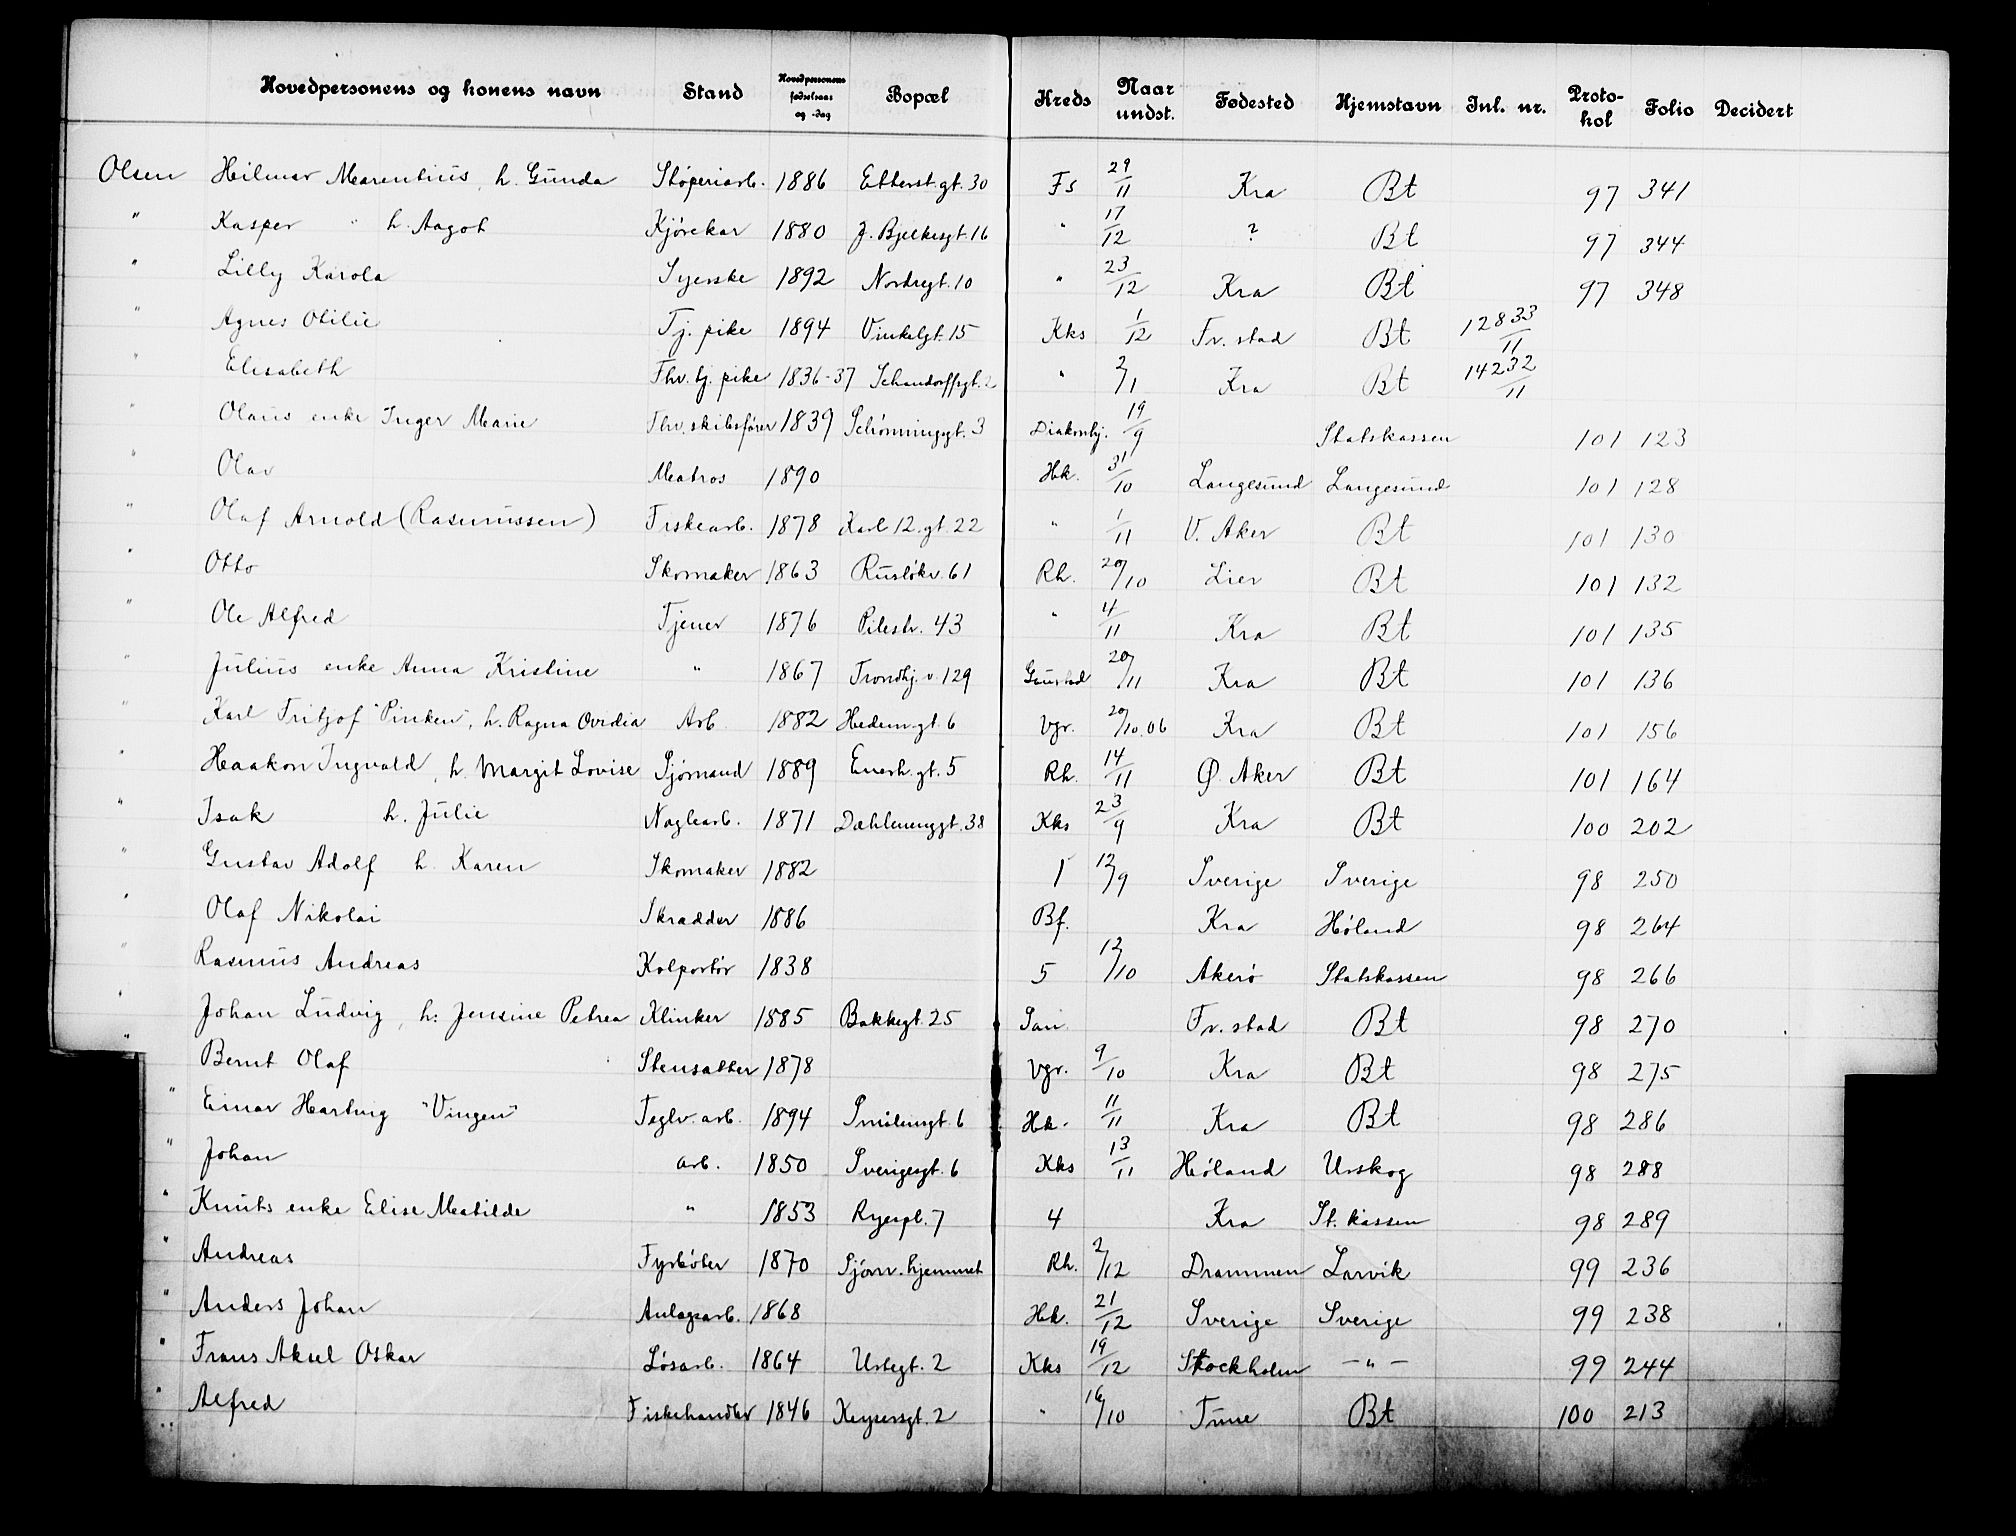 Hovedpersonens og konens navn Stand Hovedpersonens fødselsaar og -dag Bopæl Kreds Naar undst. Fødested Hjemstavn Inl. nr. Protokol Folio Decidert
Olsen Hilmar Marentius, h. Gunda Støperiarb. 1886 Etterst.gt. 30 Fs 29/11 Kra Bt 97 341
" Kasper " h. Aagot Kjørekar 1880 J. Bjelkesgt. 16 " 17/12 ? Bt 97 344
" Lilly Karola Syerske 1892 Nordregt. 10 " 23/12 Kra Bt 97 348
" Agnes Otilie Tj. pike 1894 Vinkelgt. 15 Kks 1/12 Fr. stad Bt 12833/11
" Elisabeth Fhv. tj. pike 1836-37 Schandorffsgt. 2 " 2/1 Kra Bt 14232/11
" Olaus enke Inger Marie Fhv. skibsfører 1839 Schönningsgt. 3 Diakonhj. 19/9 Statskassen 101 123
" Olav Matros 1890 Hk. 31/10 Langesund Langesund 101 128
" Olaf Arnold (Rasmussen) Fiskearb. 1878 Karl 12. gt. 22 " 1/11 V. Aker Bt 101 130
" Otto Skomaker 1863 Rusløkv. 61 Rh. 20/10 Lier Bt 101 132
" Ole Alfred Tjener 1876 Pilestr. 43 " 4/11 Kra Bt 101 135
" Julius enke Anna Kristine " 1867 Trondhj. v. 129 Gaustad 20/11 Kra Bt 101 136
" Karl Fritjof "Pinken", h. Ragna Ovidia Arb. 1882 Hedem.gt. 6 Vgr. 20/10.06 Kra Bt 101 156
" Haakon Ingvald, h. Margit Lovise Sjømand 1889 Enerh.gt. 5 Rh. 14/11 Ø. Aker Bt 101 164
" Isak h. Julie Naglearb. 1871 Dæhlenenggt. 38 Kks 23/9 Kra Bt 100 202
" Gustav Adolf h. Karen Skomaker 1882 1 12/9 Sverige Sverige 98 250
" Olaf Nikolai Skrædder 1886 Bf. Kra Høland 98 264
" Rasmus Andreas Kolportør 1838 5 12/10 Akerø Statskassen 98 266
" Johan Ludvig, h: Jensine Petrea Klinker 1885 Bakkegt. 25 San. Fr. stad Bt 98 270
" Bernt Olaf Stensætter 1878 Vgr. 9/10 Kra Bt 98 275
" Einar Hartvig "Vingen" Teglv. arb. 1894 Smålensgt. 6 Hk. 11/11 Kra Bt 98 286
" Johan arb. 1850 Sverigesgt. 6 Kks 13/11 Høland Urskog 98 288
" Knuts enke Elise Matilde " 1853 Ryespl. 7 4 Kra St. kassen 98 289
" Andreas Fyrbøter 1870 Sjøm. hjemmet Rh. 2/12 Drammen Larvik 99 236
" Anders Johan Anlægsarb. 1868 Hk. 21/12 Sverige Sverige 99 238
" Frans Aksel Oskar Løsarb. 1864 Urtegt. 2 Kks 19/12 Stockholm — " — 99 244
" Alfred Fiskehandler 1846 Keysersgt. 2 " 16/10 Tune Bt 100 213